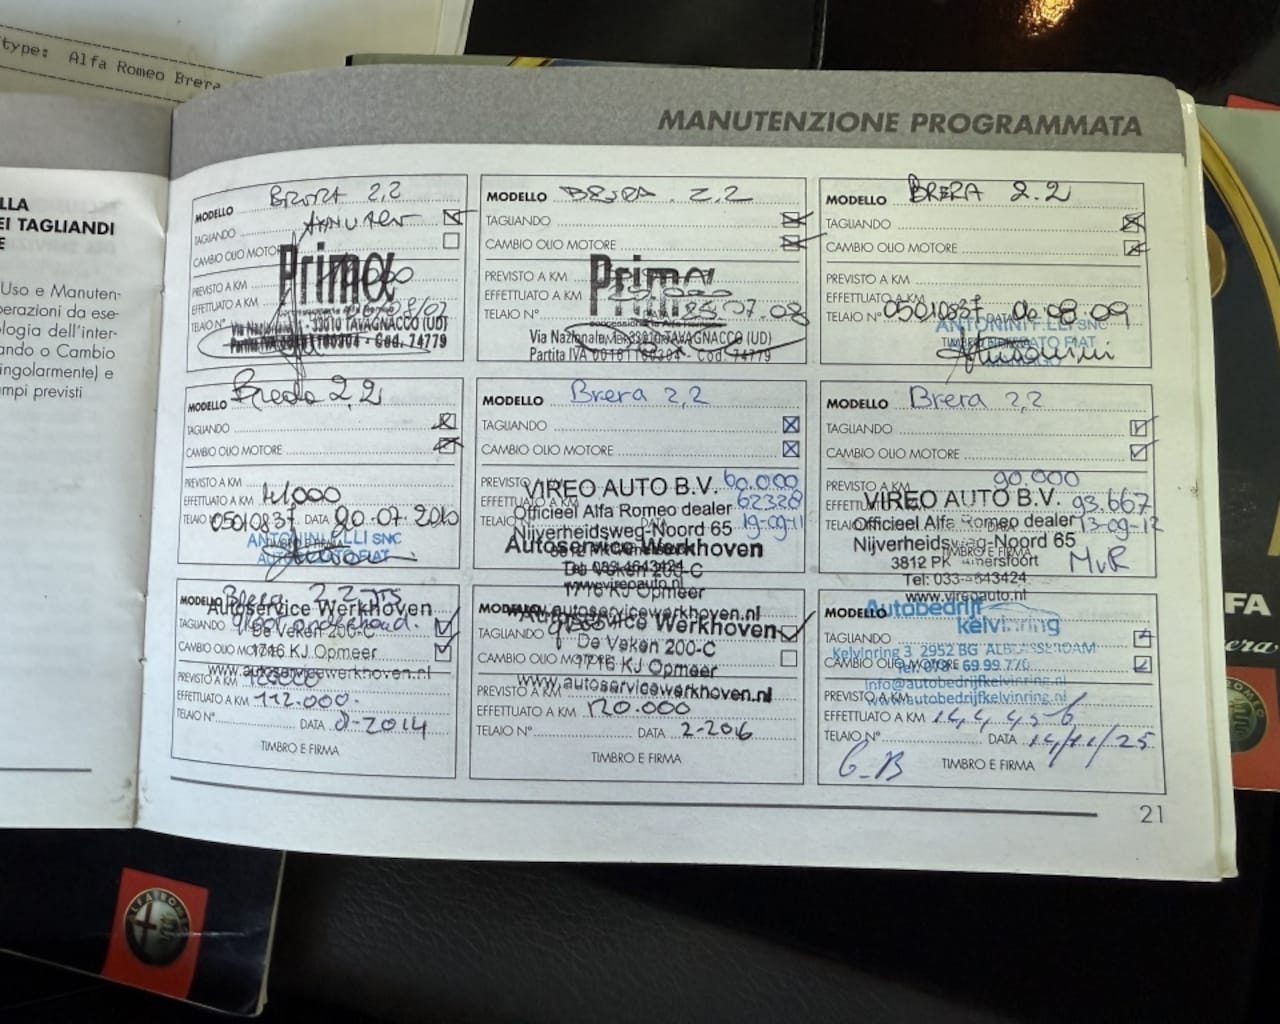 type: Alfa Romeo Brera
MANUTENZIONE PROGRAMMATA
LLA
EI TAGLIANDI
E
Uso e Manuten-
erazioni da ese-
ologia dell'inter-
ando o Cambio
ingolarmente) e
mpi previsti
MODELLO BRERA 2,2
TAGLIANDO
CAMBIO OLIO MOTORE
PREVISTO A KM
EFFETTUATO A KM
TELAIO N°
Prima
33010 TAVAGNACCO (UD)
Partita IVA - Cod. 74779
MODELLO BRERA 2.2
TAGLIANDO
CAMBIO OLIO MOTORE
PREVISTO A KM
EFFETTUATO A KM
TELAIO N° 07.08
Prima
Via Nazionale, 33010 TAVAGNACCO (UD)
Partita IVA - Cod. 74779
MODELLO BRERA 2.2
TAGLIANDO
CAMBIO OLIO MOTORE
PREVISTO A KM
EFFETTUATO A KM
TELAIO N° 05010837 DATA 06.08.09
ANTONINI F.LLI SNC
MODELLO Brera 2,2
TAGLIANDO
CAMBIO OLIO MOTORE
PREVISTO A KM
EFFETTUATO A KM 41000
TELAIO 05010837 DATA 20.07.2010
ANTONINI F.LLI SNC
MODELLO Brera 2,2
TAGLIANDO
CAMBIO OLIO MOTORE
PREVISTO 60.000
EFFETTUATO A KM 62328
TELAIO N° 19-09-11
VIREO AUTO B.V.
Officieel Alfa Romeo dealer
Nijverheidsweg-Noord 65
Tel: 033-4643424
www.vireoauto.nl
MODELLO Brera 2,2
TAGLIANDO
CAMBIO OLIO MOTORE
PREVISTO A KM 90.000
VIREO AUTO B.V. 93.667
Officieel Alfa Romeo dealer 13-09-12
Nijverheidsweg-Noord 65
3812 PK Amersfoort MvR
Tel: 033-4643424
www.vireoauto.nl
MODELLO Brera 2.2 JTS
Autoservice Werkhoven
TAGLIANDO groot onderhoud.
De Veken 200-C
CAMBIO OLIO MOTORE
1716 KJ Opmeer
www.autoservicewerkhoven.nl
PREVISTO A KM
EFFETTUATO A KM 112.000.
TELAIO N° DATA 8-2014
TIMBRO E FIRMA
Autoservice Werkhoven
De Veken 200-C
1716 KJ Opmeer
www.autoservicewerkhoven.nl
MODELLO
TAGLIANDO
Autoservice Werkhoven
De Veken 200-C
CAMBIO OLIO MOTORE
1716 KJ Opmeer
www.autoservicewerkhoven.nl
PREVISTO A KM
EFFETTUATO A KM 120.000
TELAIO N° DATA 2-2016
TIMBRO E FIRMA
MODELLO
Autobedrijf
kelvinring
TAGLIANDO
Kelvinring 3 2952 BG ALBLASSERDAM
CAMBIO OLIO MOTORE
Tel. 078 - 69.99.770
info@autobedrijfkelvinring.nl
www.autobedrijfkelvinring.nl
PREVISTO A KM
EFFETTUATO A KM 144 456
TELAIO N° DATA 14/11/25
TIMBRO E FIRMA
21
FA
era
ALFA ROMEO